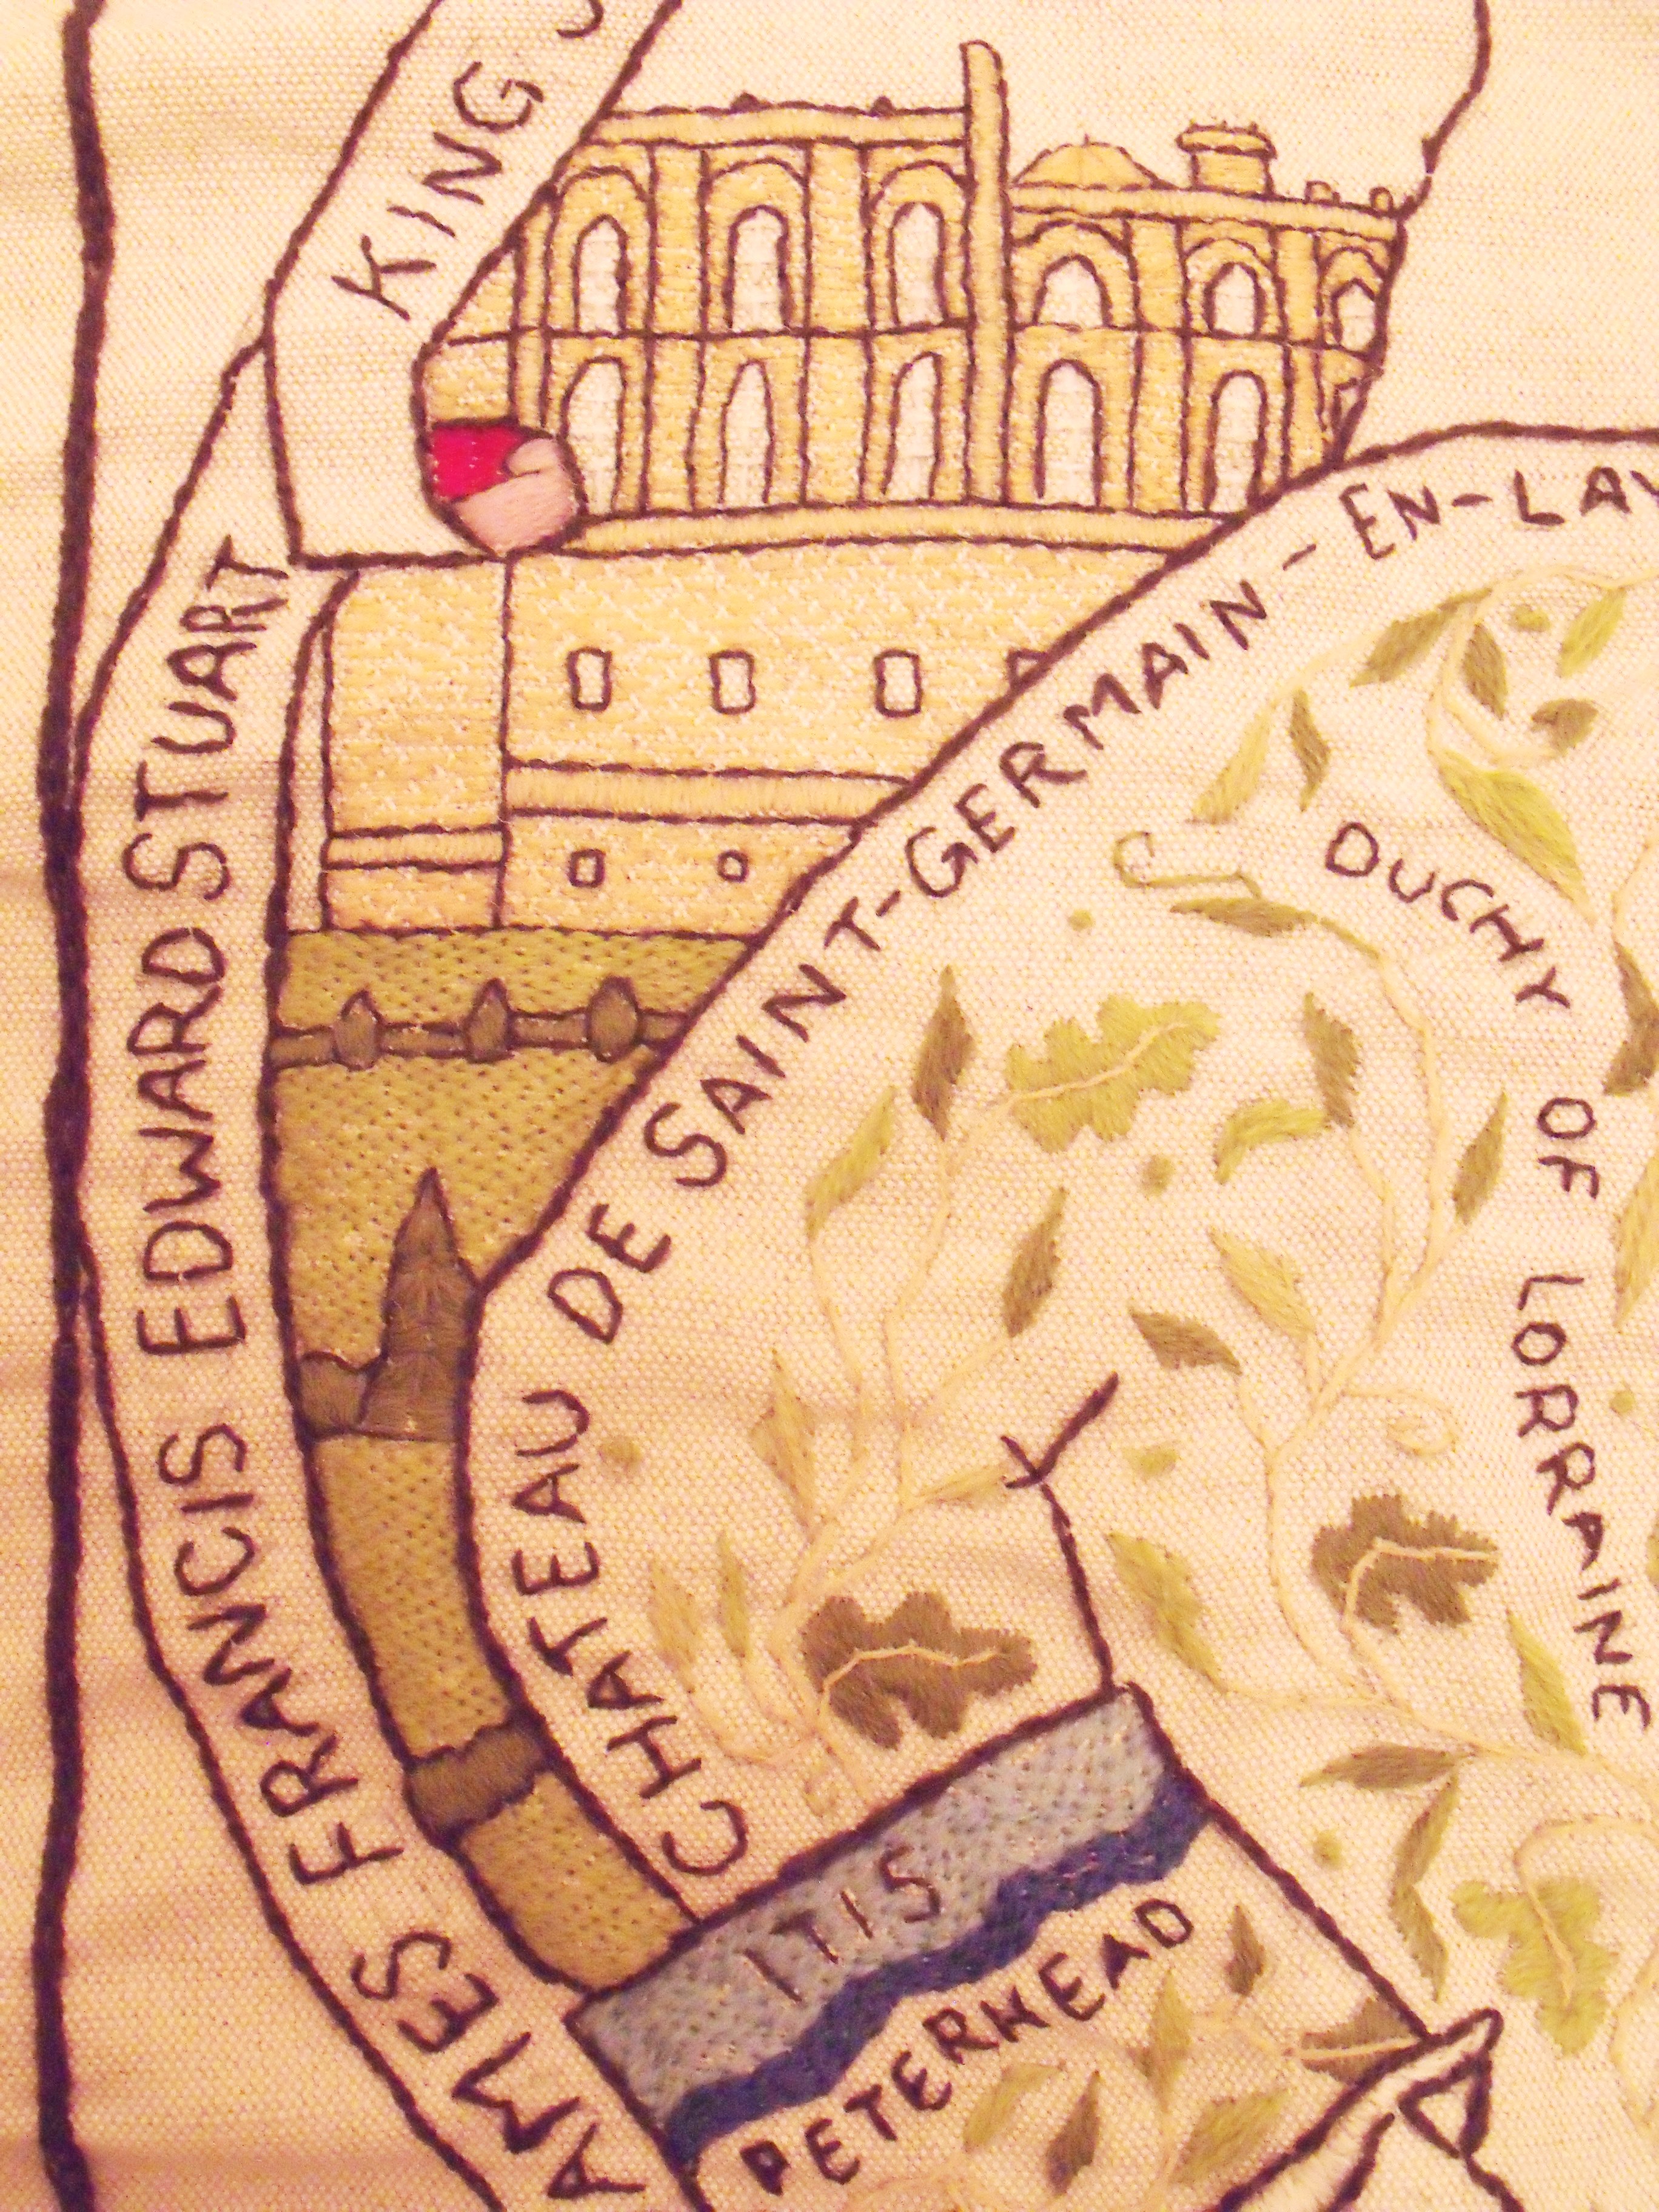 KING J
AMES FRANCIS EDWARD STUART
CHATEAU DE SAINT-GERMAIN-EN-LAY
DUCHY OF LORRAINE
ITIS
PETERHEAD